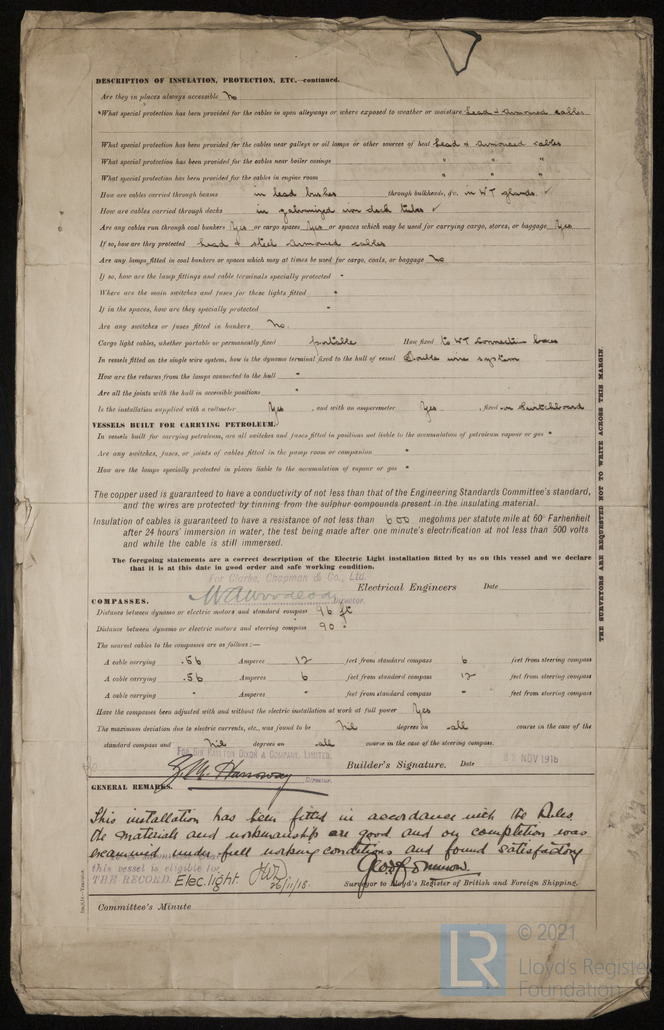 DESCRIPTION OF INSULATION, PROTECTION, ETC.—continued.
Are they in places always accessible No
*What special protection has been provided for the cables in open alleyways or where exposed to weather or moisture Lead & Armoured cables
What special protection has been provided for the cables near galleys or oil lamps or other sources of heat Lead & Armoured cables
What special protection has been provided for the cables near boiler casings " " "
What special protection has been provided for the cables in engine room " " "
How are cables carried through beams in lead bushes through bulkheads, &c. in WT glands ✓
How are cables carried through decks in galvanized iron deck tubes ✓
Are any cables run through coal bunkers Yes or cargo spaces Yes or spaces which may be used for carrying cargo, stores, or baggage Yes
If so, how are they protected Lead & steel armoured cables
Are any lamps fitted in coal bunkers or spaces which may at times be used for cargo, coals, or baggage No
If so, how are the lamp fittings and cable terminals specially protected "
Where are the main switches and fuses for these lights fitted "
If in the spaces, how are they specially protected "
Are any switches or fuses fitted in bunkers No.
Cargo light cables, whether portable or permanently fixed portable How fixed to WT Connection boxes
In vessels fitted on the single wire system, how is the dynamo terminal fixed to the hull of vessel Double wire system
How are the returns from the lamps connected to the hull "
Are all the joints with the hull in accessible positions "
Is the installation supplied with a voltmeter Yes , and with an amperemeter Yes , fixed on Switchboard
VESSELS BUILT FOR CARRYING PETROLEUM.
In vessels built for carrying petroleum, are all switches and fuses fitted in positions not liable to the accumulation of petroleum vapour or gas "
Are any switches, fuses, or joints of cables fitted in the pump room or companion "
How are the lamps specially protected in places liable to the accumulation of vapour or gas "
The copper used is guaranteed to have a conductivity of not less than that of the Engineering Standards Committee's standard,
and the wires are protected by tinning from the sulphur compounds present in the insulating material.
Insulation of cables is guaranteed to have a resistance of not less than 600 megohms per statute mile at 60° Farhenheit
after 24 hours' immersion in water, the test being made after one minute's electrification at not less than 500 volts
and while the cable is still immersed.
The foregoing statements are a correct description of the Electric Light installation fitted by us on this vessel and we declare
that it is at this date in good order and safe working condition.
For Clarke, Chapman & Co., Ltd.
Director. Electrical Engineers Date
COMPASSES.
Distance between dynamo or electric motors and standard compass 96 ft
Distance between dynamo or electric motors and steering compass 90 "
The nearest cables to the compasses are as follows:—
A cable carrying .56 Amperes 12 feet from standard compass 6 feet from steering compass
A cable carrying .56 Amperes 6 feet from standard compass 12 feet from steering compass
A cable carrying " Amperes " feet from standard compass " feet from steering compass
Have the compasses been adjusted with and without the electric installation at work at full power Yes
The maximum deviation due to electric currents, etc., was found to be Nil degrees on all course in the case of the
standard compass and Nil degrees on all course in the case of the steering compass.
DIXON & COMPANY, LIMITED.
Director. Builder's Signature. Date NOV 1918
GENERAL REMARKS.
This installation has been fitted in accordance with the Rules
the materials and workmanship are good and on completion was
examined under full working conditions and found satisfactory
this vessel is eligible for
THE RECORD. Elec. light. 26/11/18.
Surveyor to Lloyd's Register of British and Foreign Shipping.
Committee's Minute
THE SURVEYORS ARE REQUESTED NOT TO WRITE ACROSS THIS MARGIN.
LR © 2021
Lloyd's Register
Foundation